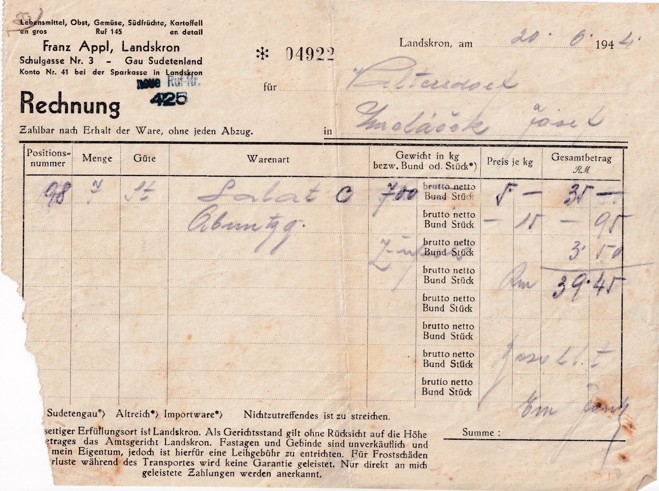 Lebensmittel, Obst, Gemüse, Südfrüchte, Kartoffell
en gros Ruf 145 en detail
Franz Appl, Landskron
Schulgasse Nr. 3 – Gau Sudetenland
Konto Nr. 41 bei der Sparkasse in Landskron
neue Ruf-Nr.
425
* 04922
Landskron, am 20. 6. 1944.
Rechnung
für
Zahlbar nach Erhalt der Ware, ohne jeden Abzug.
in Josef
Positions-nummer Menge Güte Warenart Gewicht in kg bezw. Bund od. Stück*) Preis je kg Gesamtbetrag RM
98 7 St Salat C 700 brutto netto Bund Stück 5 – 35 –
brutto netto Bund Stück – 15 – 95
brutto netto Bund Stück 3.50
brutto netto Bund Stück Rm 39.45
brutto netto Bund Stück
brutto netto Bund Stück
brutto netto Bund Stück
Sudetengau*) Altreich*) Importware*) Nichtzutreffendes ist zu streichen.
seitiger Erfüllungsort ist Landskron. Als Gerichtsstand gilt ohne Rücksicht auf die Höhe
etrages das Amtsgericht Landskron. Fastagen und Gebinde sind unverkäuflich und
mein Eigentum, jedoch ist hierfür eine Leihgebühr zu entrichten. Für Frostschäden
rluste während des Transportes wird keine Garantie geleistet. Nur direkt an mich
geleistete Zahlungen werden anerkannt.
Summe :